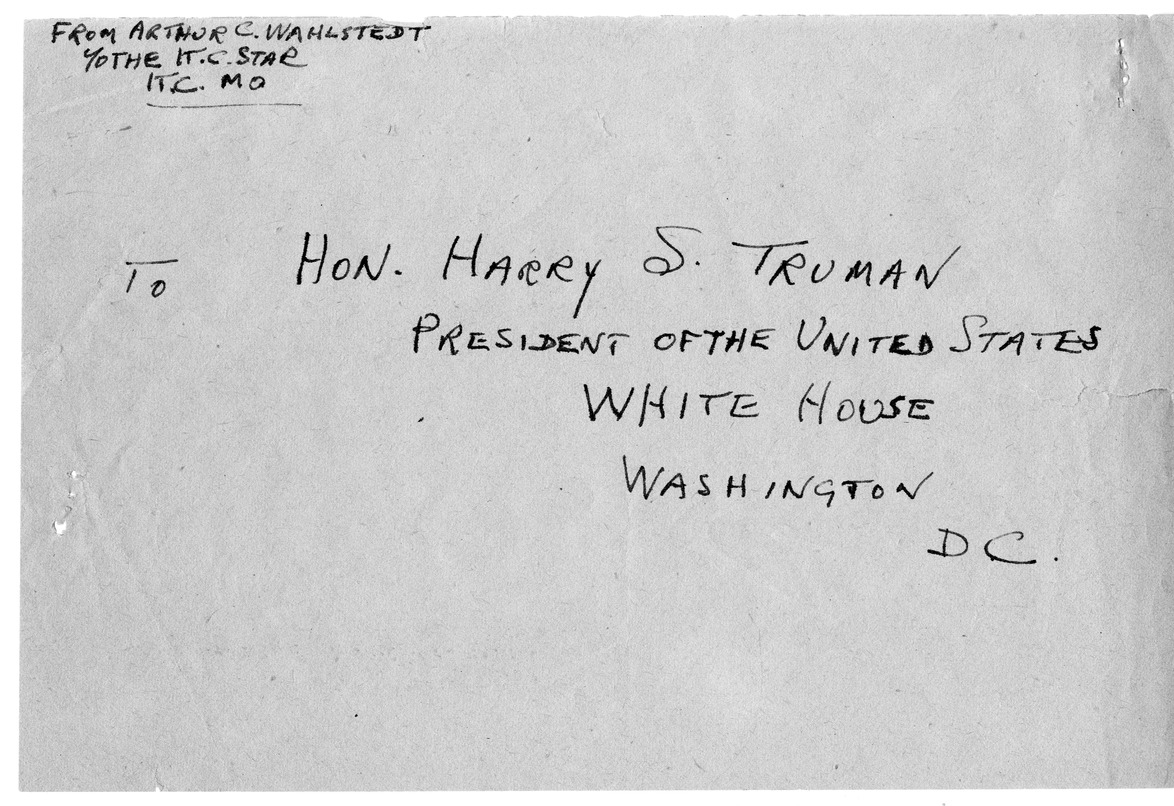 FROM ARTHUR C. WAHLSTEDT
℅ THE K.C. STAR
K.C. MO
TO HON. HARRY S. TRUMAN
PRESIDENT OF THE UNITED STATES
WHITE HOUSE
WASHINGTON
D C.